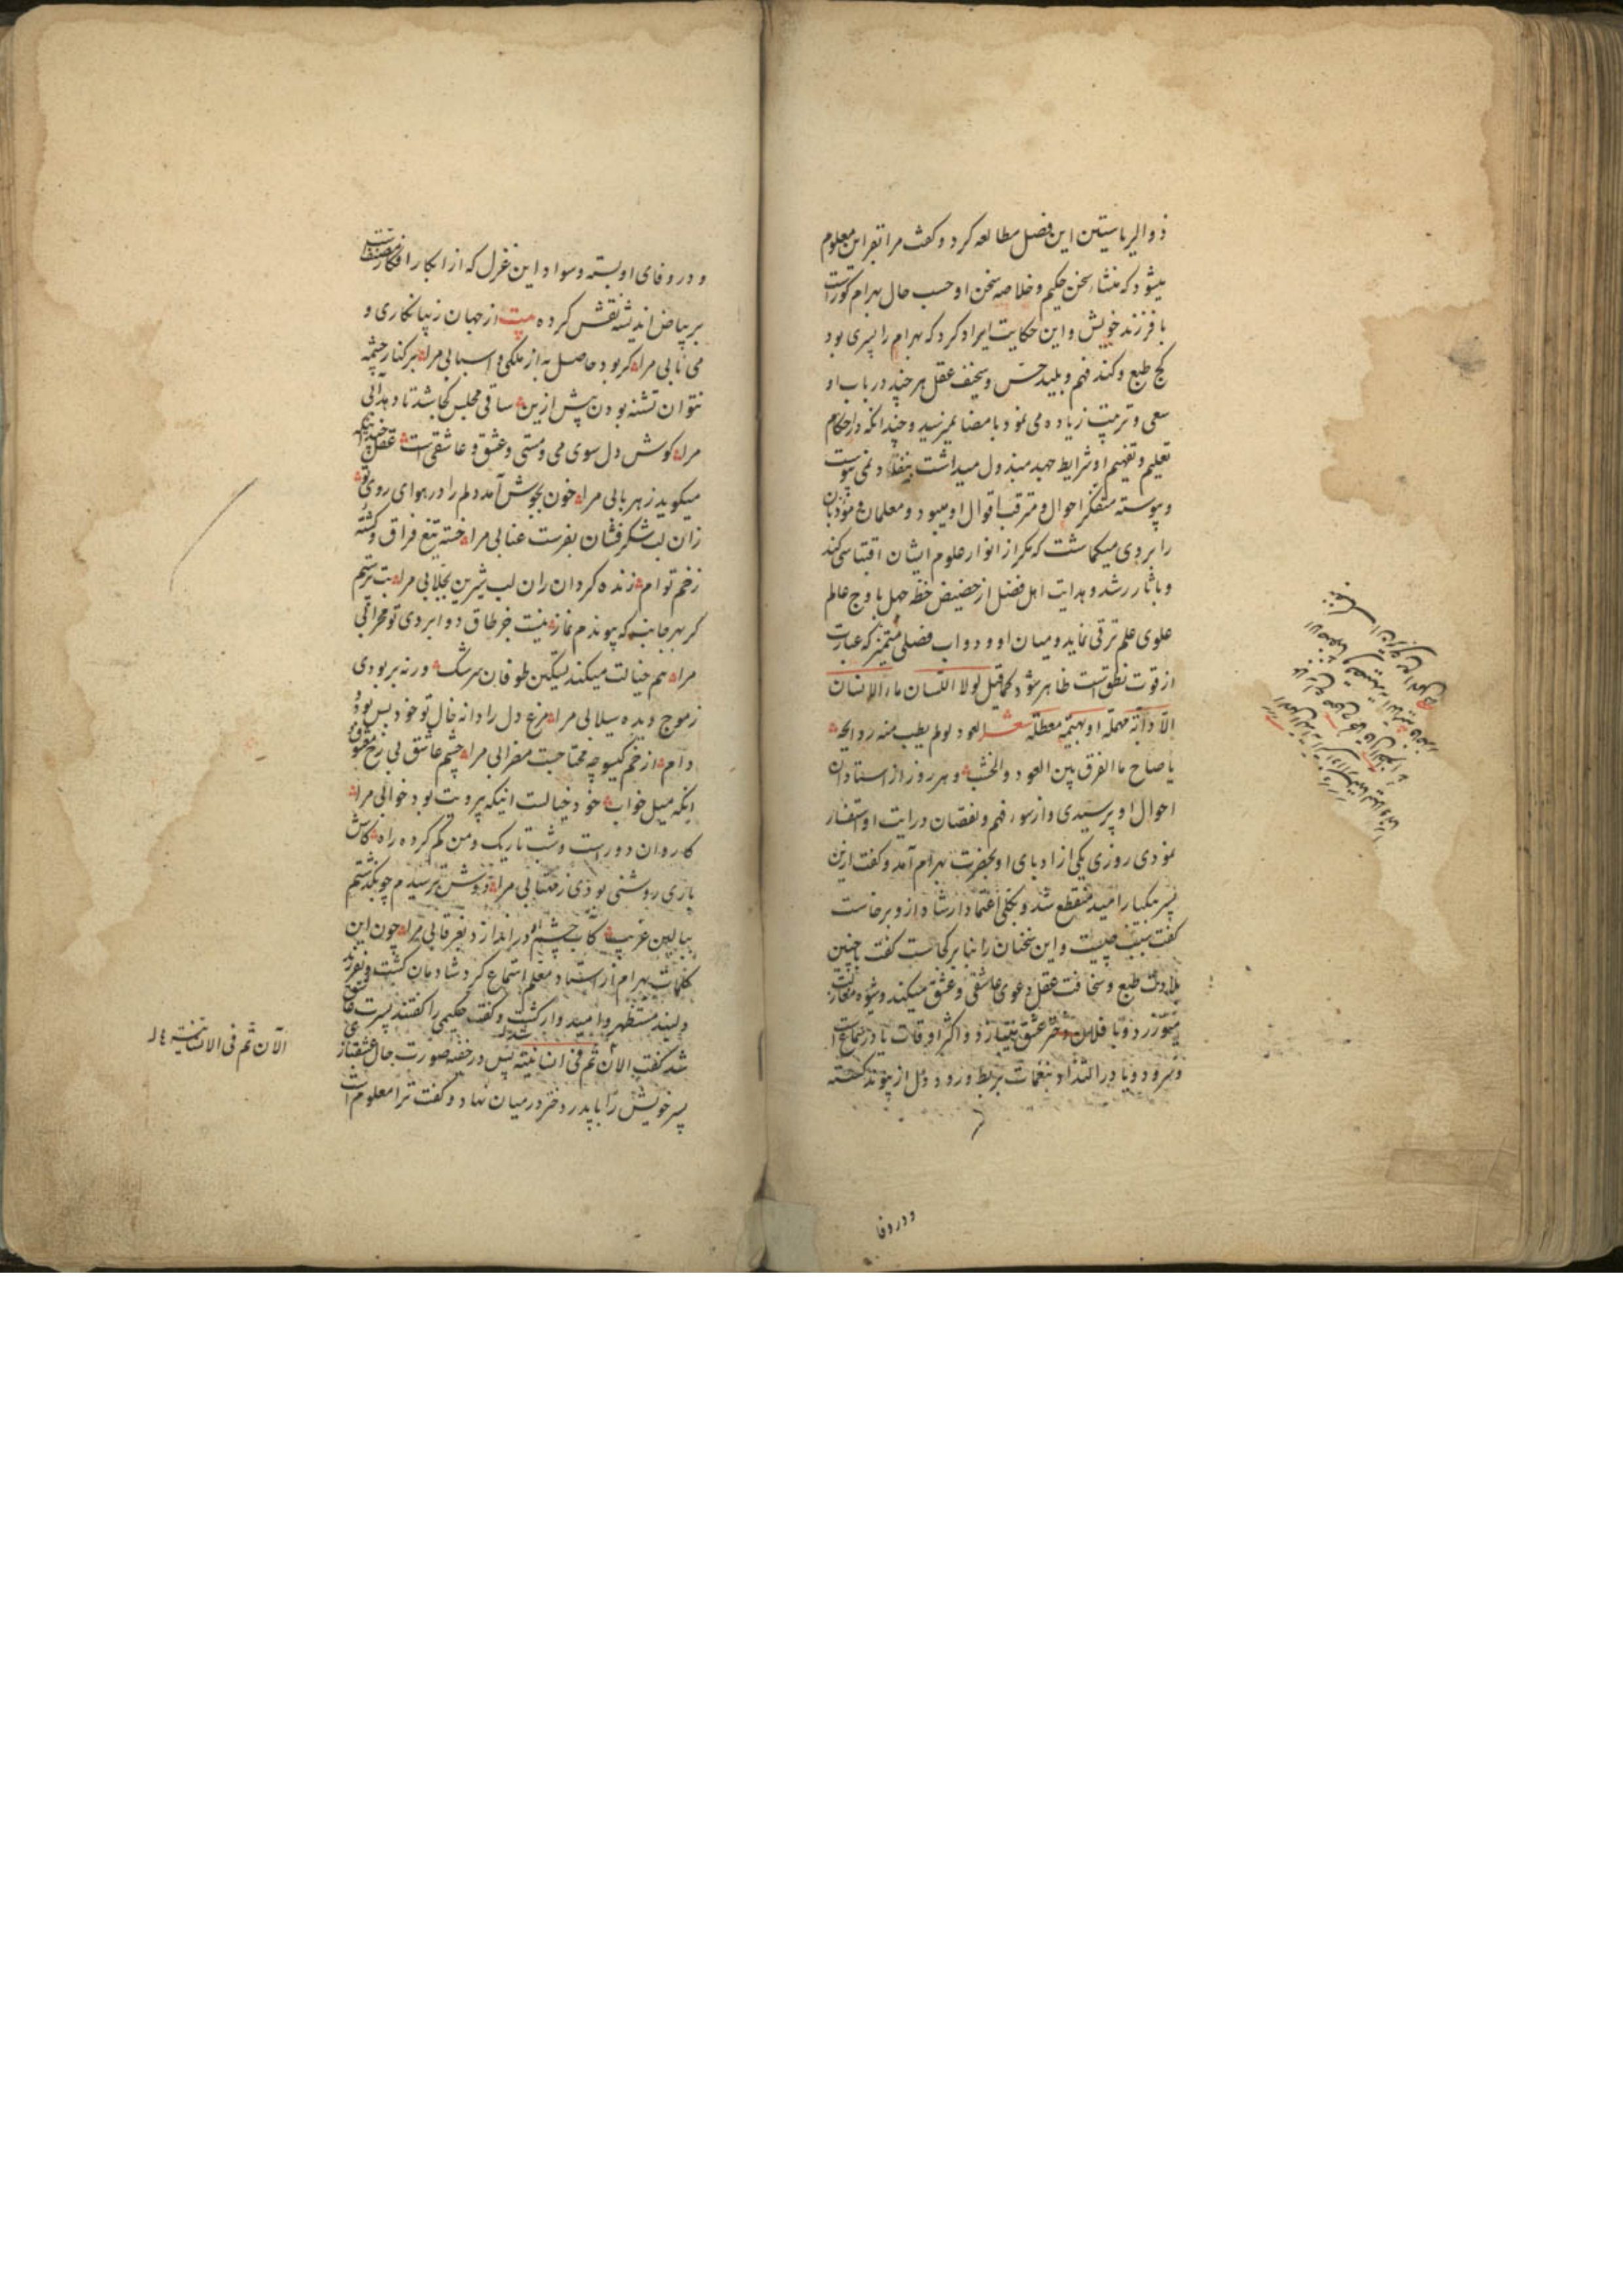 ذوالریاستین این فصل مطالعه کرد و گفت مرا تقراین معلوم
میشود که منشاء سخن حکیم و خلاصه سخن او حسب حال بهرام کورست
با فرزند خویش و این حکایت ایراد کرد که بهرام را پسری بود
کج طبع و کند فهم و بلید حس و سخیف عقل هر چند در باب او
سعی و تربیت زیاده می نمود بامضا نمیرسید و چندانکه در احکام
تعلیم و تفهیم او شرایط جهد مبذول میداشت بنفاد نمی پیوست
و پیوسته متفکر احوال و مترقب اقوال او میبود و معلمان و مؤدبان
را بروی میکماشت که مکر از انوار علوم ایشان اقتباسی کند
و باثار رشد و هدایت اهل فضل از حضیض خطه جهل باوج عالم
علوی علم ترقی نماید و میان او و دواب فضلی متمیز که عبارت
از قوت نطق است ظاهر شود کما قیل لولا اللسان ما الانسان
الا دابة مهملة او بهیمة معطلة شعر العود لو لم یطب منه روایحه
یا صاح ما الفرق بین العود والخشب و هر روز از استادان
احوال او پرسیدی و از سوء فهم و نقصان درایت او استفسار
نمودی روزی یکی از ادبای او بحضرت بهرام آمد و گفت ازین
پسر بیکبار امید منقطع شد و بکلی اعتماد ارشاد از و برخاست
گفت سبب چیست و این سخنان را بنا بر کجاست گفت با چنین
بلادت طبع و سخافت عقل دعوی عاشقی و عشق میکند و شیوه مغازلت
میورزد و با فلان دختر عشق میبازد و اکثر اوقات یا در سماع
و سرود و یا در التذاذ بنغمات بربط و رود و دل از پیوند گسسته
ودروفا
و در وفای او بسته و سواد این غزل که از ابکار افکار
بر بیاض اندیشه نقش کرده بیت از جهان زیبا نکاری و
می نابی مرا کر بود حاصل به از ملکی و اسبابی مرا بر کنار چشمه
نتوان تشنه بودن پیش ازین ساقی مجلس کجا شد تا دهد آبی
مرا کوش دل سوی می و مستی و عشق و عاشقی است عقل
میکوید ز هر بابی مرا خون بجوش آمد دلم را در هوای روی تو
زان لب شکر فشان بفرست عنابی مرا خسته تیغ فراق و کشته
زخم توام زنده کردان زان لب شیرین بجلابی مرا بت پرستم
کر بهر جانب که پیوندم نماز نیست جز طاق دو ابروی تو محرابی
مرا هم خیالت میکند تسکین طوفان سرشک ورنه بربودی
ز موج دیده سیلابی مرا مرغ دل را دانه خال تو خود بس بود
دام از خم کیسو چه محتاجست مضرابی مرا چشم عاشق بی رخ معشوق
اینکه میل خواب خود خیالست اینکه بی رویت بود خوابی مرا
کاروان دورست و شب تاریک و من کم کرده راه کاش
باری روشنی بودی ز مهتابی مرا دوش ترسیدم چو بکذشتم
ببالین غریب کاب چشمم در اندازد بغرقابی مرا چون این
کلمات بهرام از استاد معلم استماع کرد شادمان کشت و بفرزند
دلبند مستظهر و امیدوار کشت و گفت حکیمی را گفتند پسرت عاشق
شد گفت الان تم فی انسانیته پس در خفیه صورت حال عشقبازی
پسر خویش را با پدر دختر در میان نهاد و گفت ترا معلوم است
الآن تم فی الانسانیة